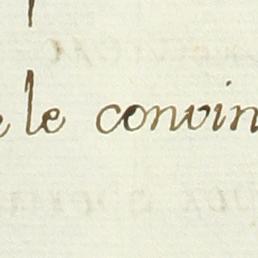 le convin